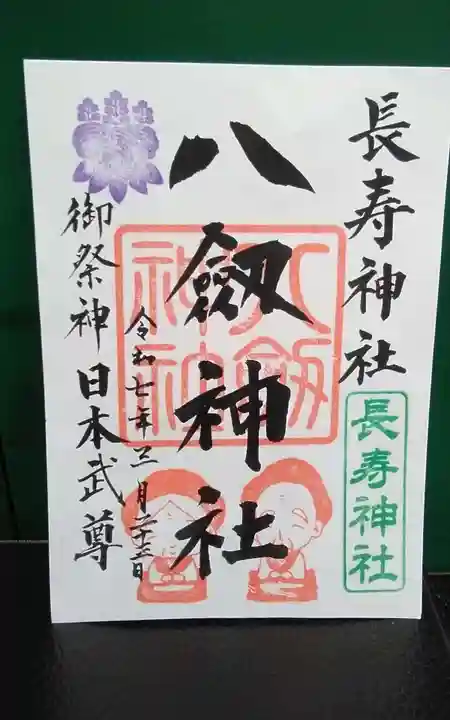 長寿神社
長寿神社
八劔神社
八劔神社
令和七年三月二十三日
御祭神 日本武尊